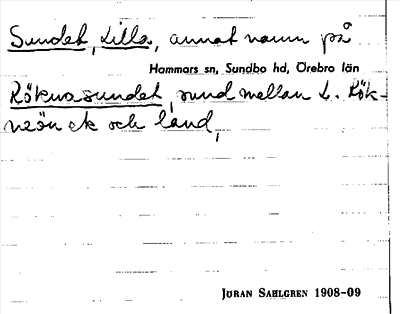 Sundet, Lilla, annat namn på
Hammars sn, Sundbo hd, Örebro län
Röknasundet, sund mellan L. Rök-
neön ek och land,
JÖRAN SAHLGREN 1908-09